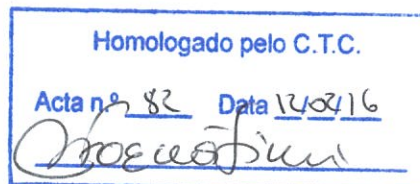 Homologado pelo C.T.C.
Acta nº 82 Data 12/02/16